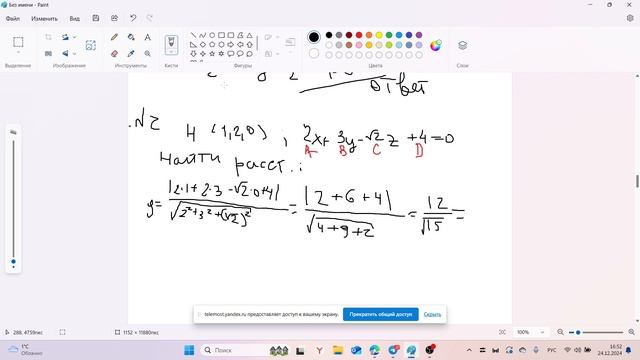 Без имени - Paint
Файл Изменить Вид
Выделение Изображение Инструменты Кисти Фигуры Цвета Слои
ответ
.№2 H (1,2,0) , 2x+ 3y-√2z +4=0
A B C D
Найти расст. :
|2·1+2·3-√2·0+4| |2+6+4| 12
y= = = =
√2²+3²+(√2)² √4+9+2 √15
telemost.yandex.ru предоставляет доступ к вашему экрану. Прекратить общий доступ Скрыть
288, 4759пкс 1152 × 11880пкс 100%
1°C
Облачно
Поиск
РУС
16:52
14.12.2024